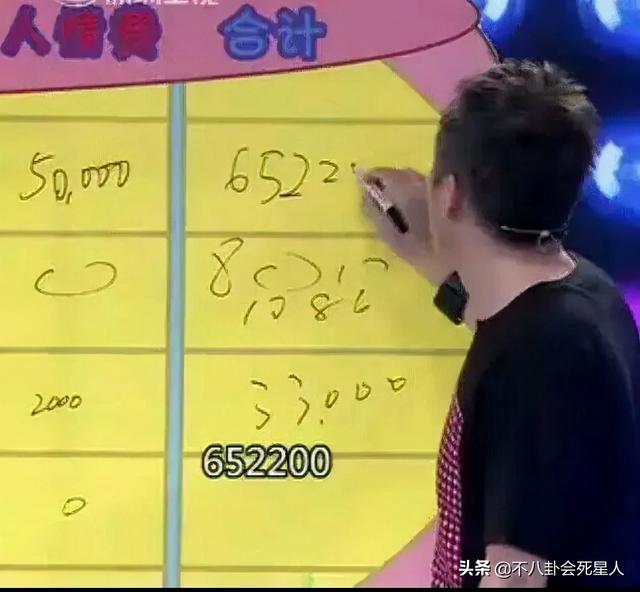 人情费 合计
50,000 6522
0
2000 33,000
652200
0
头条 @不八卦会死星人